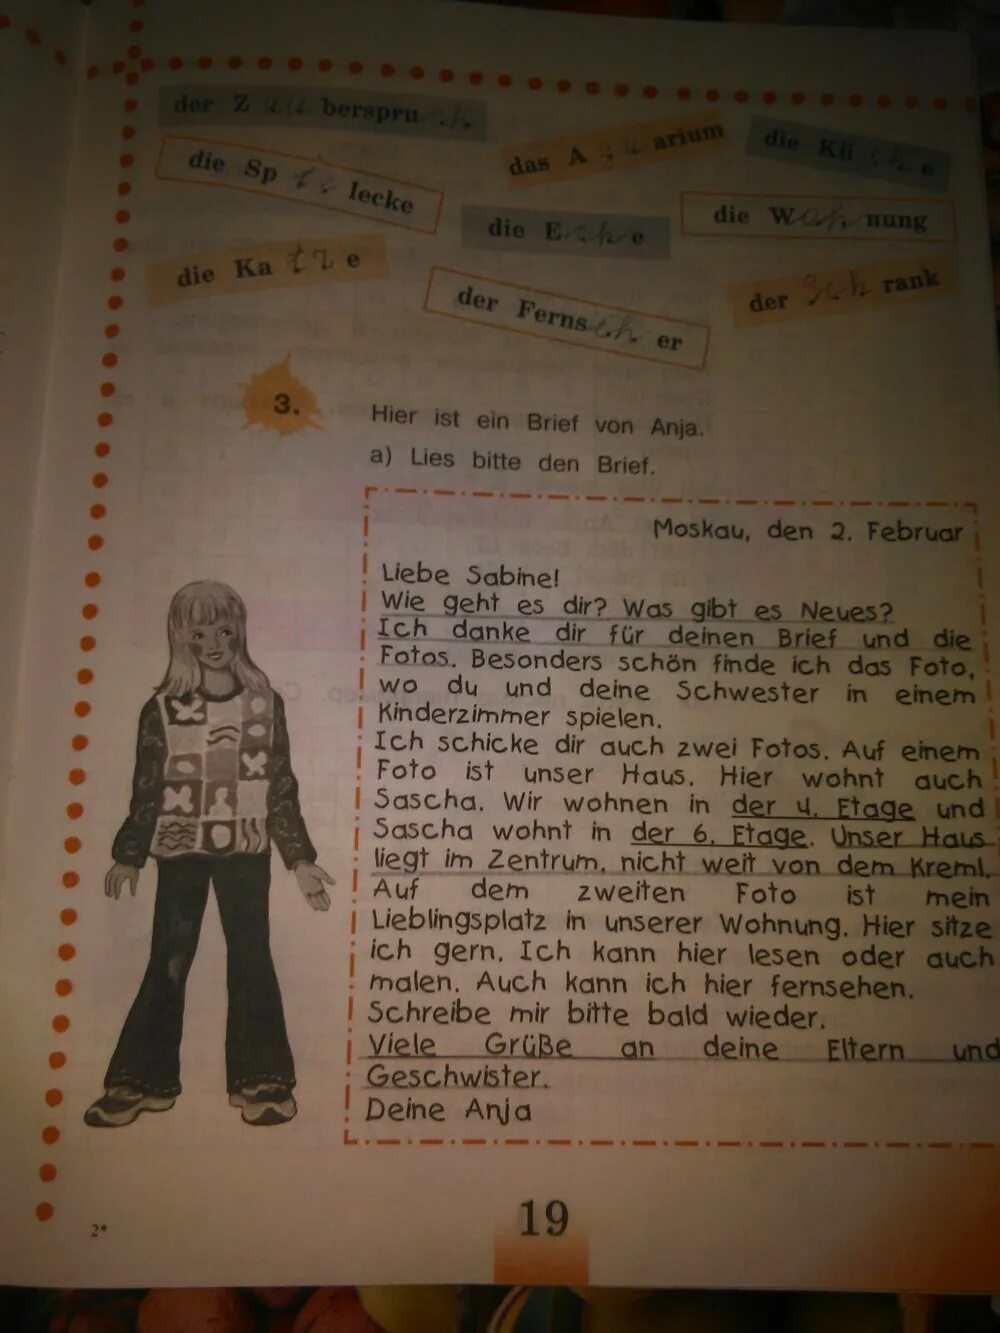 der Zauberspruch
das Aquarium
die Küche
die
die
die Wohnung
die Katze
der Fernseher
der Schrank
3.
Hier ist ein Brief von Anja.
a) Lies bitte den Brief.
Moskau, den 2. Februar
Liebe Sabine!
Wie geht es dir? Was gibt es Neues?
Ich danke dir für deinen Brief und die
Fotos. Besonders schön finde ich das Foto,
wo du und deine Schwester in einem
Kinderzimmer spielen.
Ich schicke dir auch zwei Fotos. Auf einem
Foto ist unser Haus. Hier wohnt auch
Sascha. Wir wohnen in der 4. Etage und
Sascha wohnt in der 6. Etage. Unser Haus
liegt im Zentrum, nicht weit von dem Kreml.
Auf dem zweiten Foto ist mein
Lieblingsplatz in unserer Wohnung. Hier sitze
ich gern. Ich kann hier lesen oder auch
malen. Auch kann ich hier fernsehen.
Schreibe mir bitte bald wieder.
Viele Grüße an deine Eltern und
Geschwister.
Deine Anja
19
2*